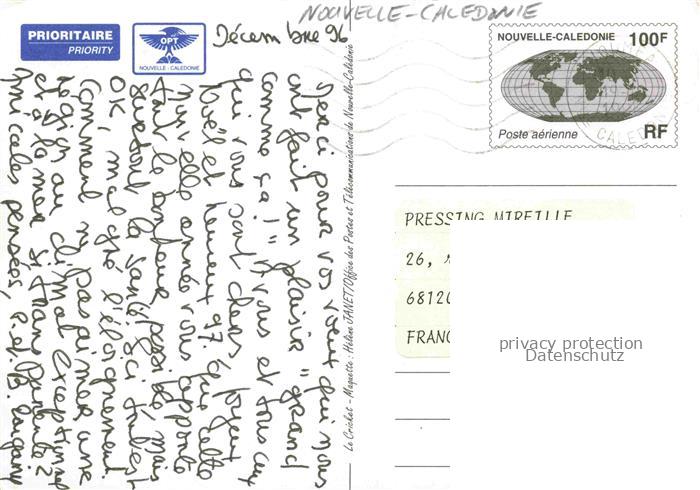 NOUVELLE-CALEDONIE
PRIORITAIRE
PRIORITY
OPT
NOUVELLE - CALEDONIE
Décembre 96
Merci pour vos voeux qui nous
ont fait un plaisir "grand
comme ça!" A vous et tous ceux
qui vous sont chers, joyeux
Noël et heureux 97. Que cette
nouvelle année vous apporte
tout le bonheur possible mais
surtout la santé. Ici tout est
OK, malgré l'éloignement.
Comment ne pas aimer une
région au climat exceptionnel
et à la mer si
Amicales pensées, R. et B.
Le Cricket - Maquette : Hélène JANET/Office des Postes et Télécommunications de Nouvelle-Calédonie
NOUVELLE-CALEDONIE 100F
Poste aérienne RF
CALEDON
PRESSING MIREILLE
26,
6812
FRANC
privacy protection
Datenschutz